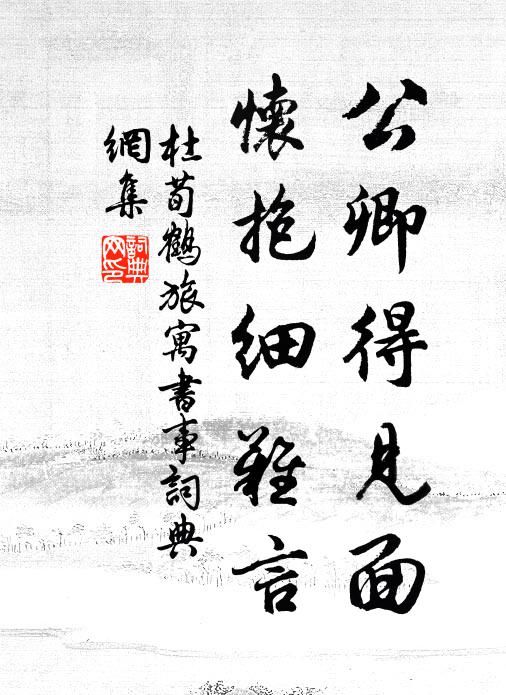 公卿得見面
懷抱細難言
杜荀鶴旅寓書事詞典
網集
詞典
网印